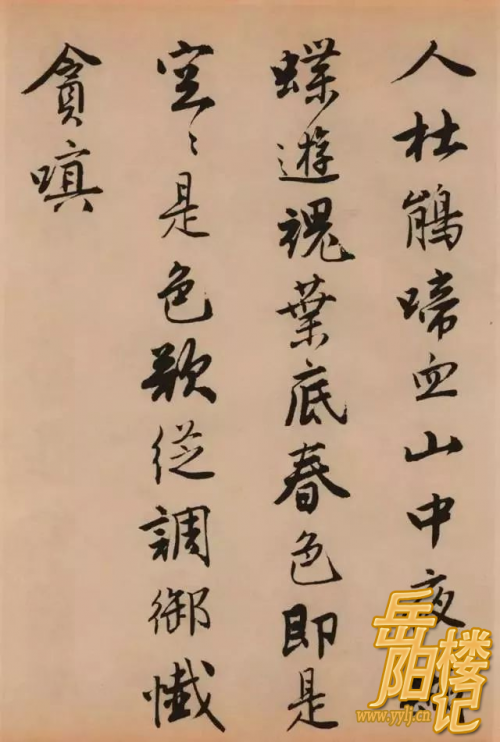 人杜鵑啼血山中夜
蝶遊魂葉底春色即是
空〻是色從調御懺
貪嗔
岳阳楼记
www.yylj.cn